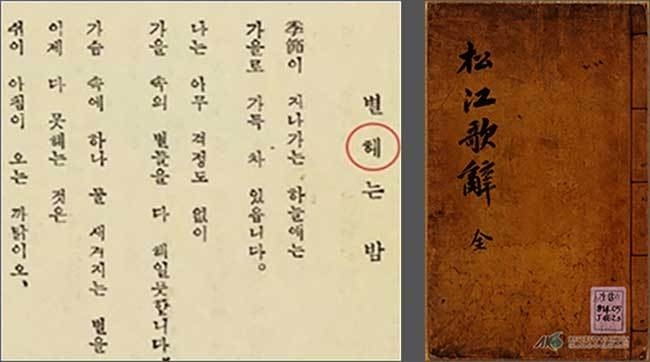 별 헤는 밤
季節이 지나가는 하늘에는
가을로 가득 차 있읍니다。
나는 아무 걱정도 없이
가을 속의 별들을 다 헤일듯합니다。
가슴 속에 하나 둘 새겨지는 별을
이제 다 못헤는 것은
쉬이 아침이 오는 까닭이오、
松江歌辭 全